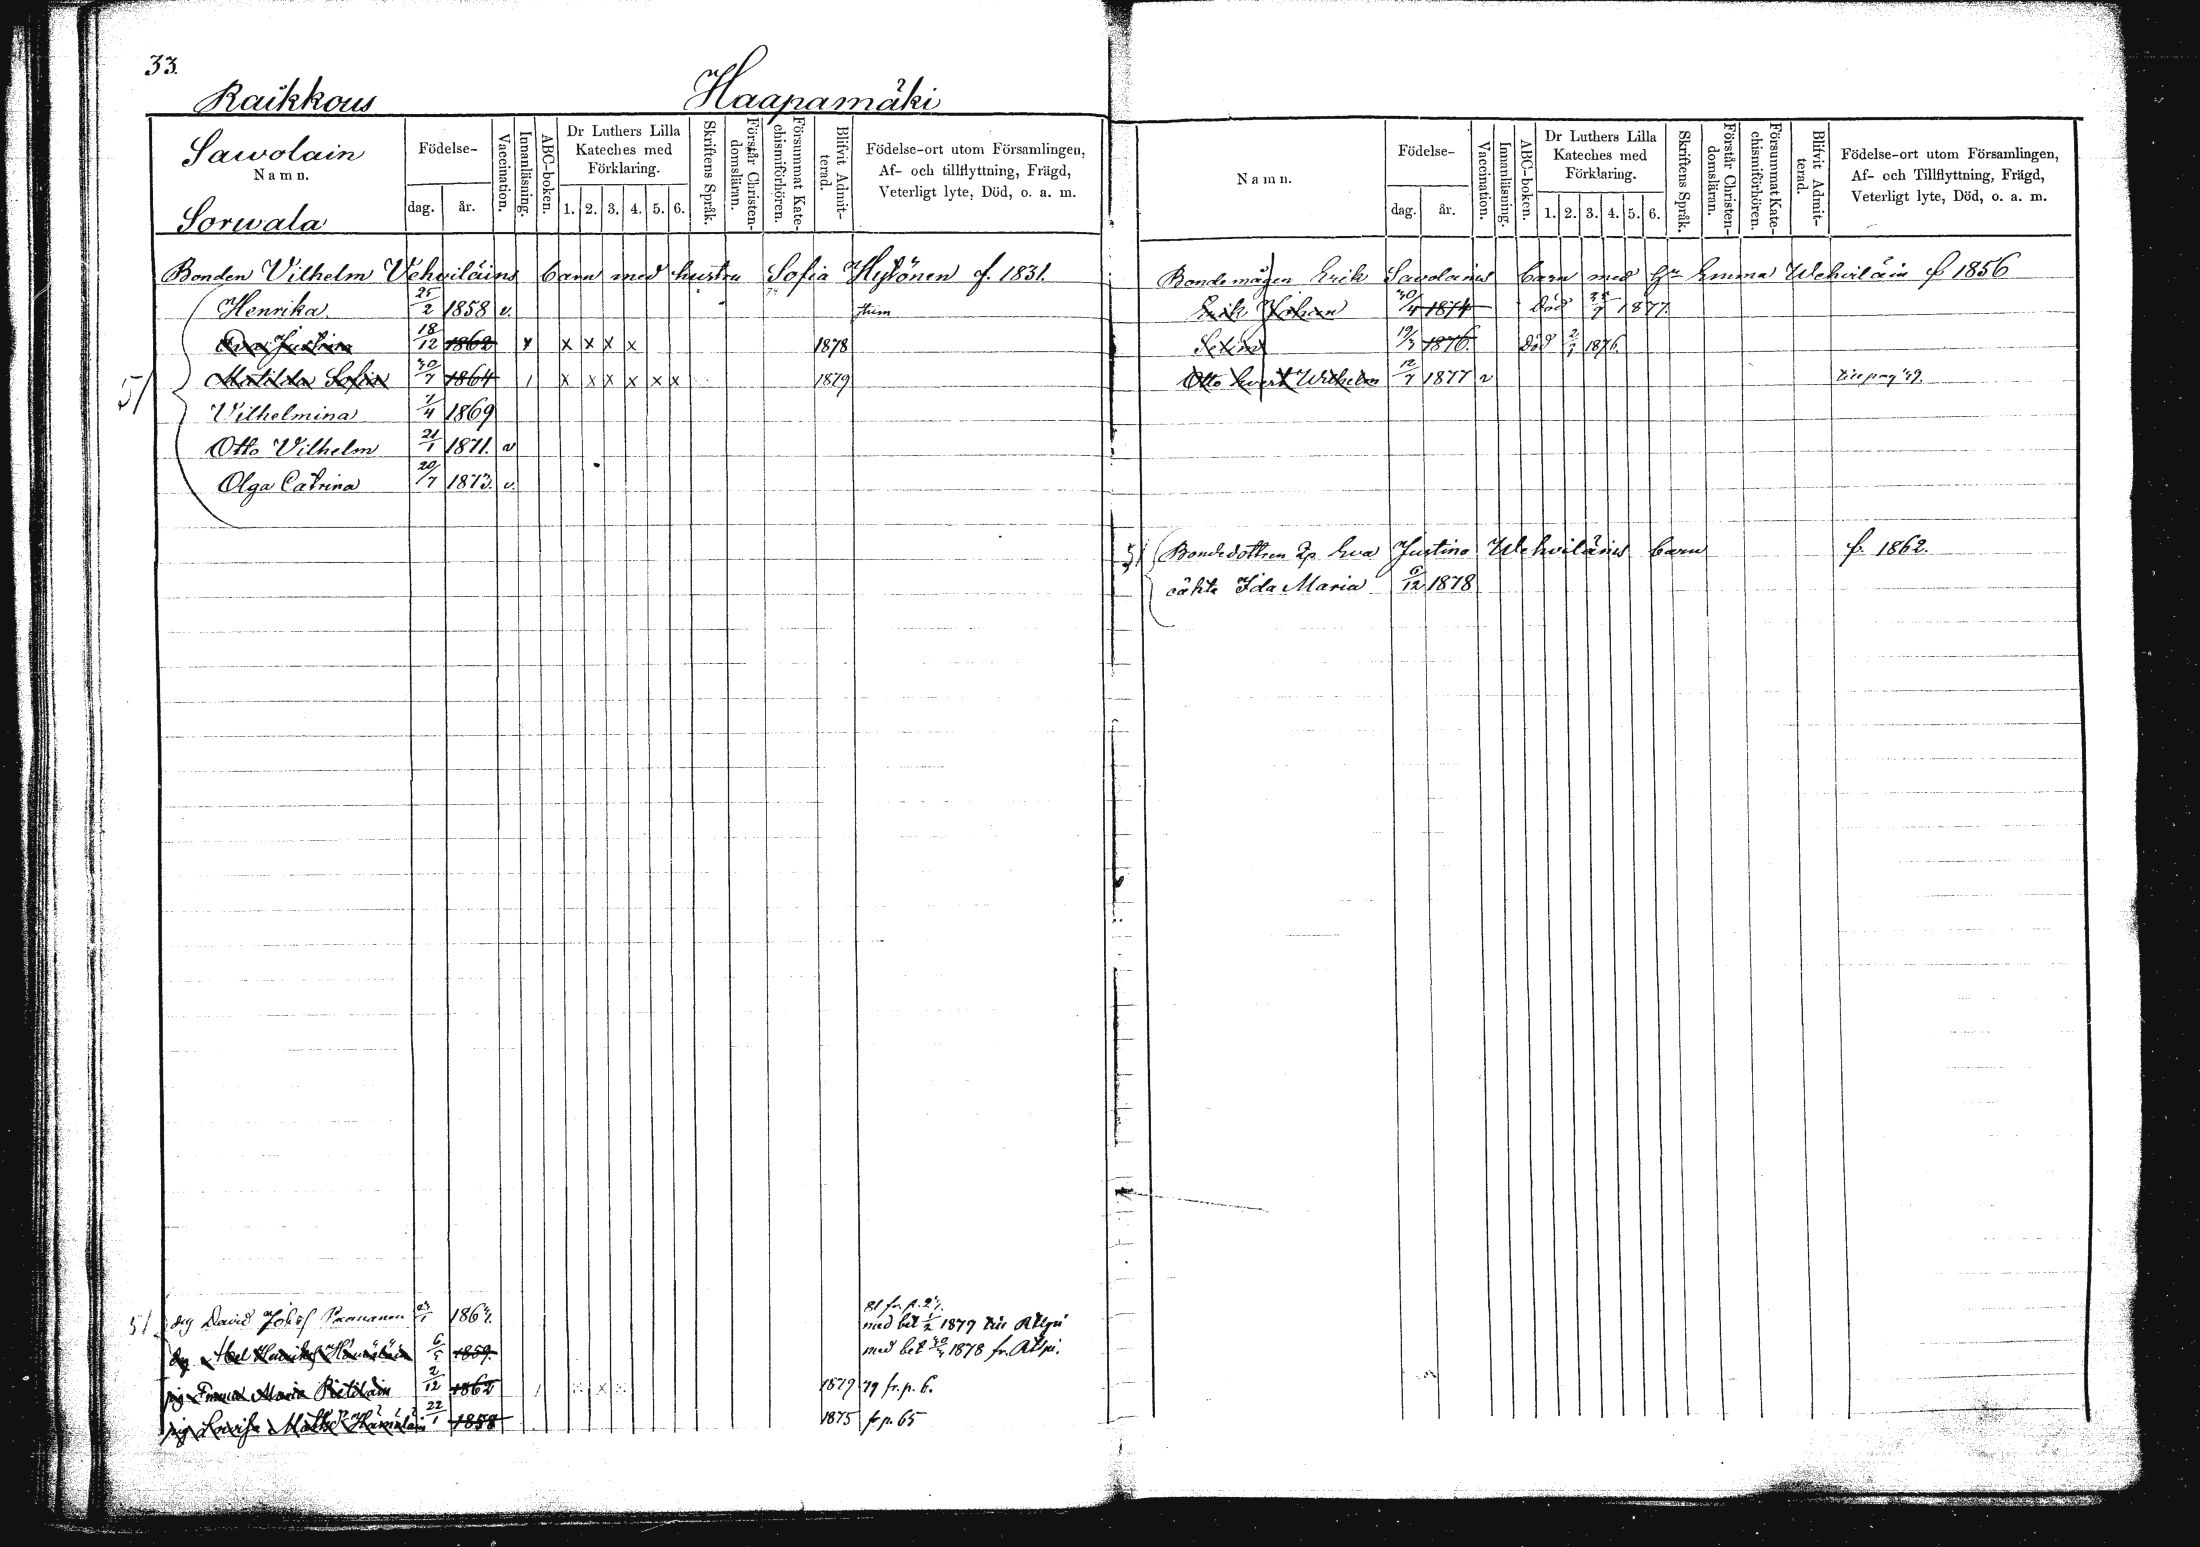 33.
Raikkous Haapamäki
Sawolain
Namn.
Sorwala
Födelse-
dag. år.
Vaccination.
Innanläsning.
ABC-boken.
Dr Luthers Lilla Kateches med Förklaring.
1. 2. 3. 4. 5. 6.
Skriftens Språk.
Förstår Christendomslärnn.
Försummat Katechismiförhören.
Blifvit Admitterad.
Födelse-ort utom Församlingen,
Af- och tillflyttning, Frägd,
Veterligt lyte, Död, o. a. m.
Bonden Vilhelm Vehviläins barn med hustru Sofia Hytönen f. 1831.
Henrika 25/2 1858 v.
Eva Justina 18/12 1862 x x x x x 1878
Matilda Sofia 30/7 1864 / x x x x x x 1879
51
Vilhelmina 7/4 1869
Otto Vilhelm 21/1 1871. v
Olga Catrina 20/7 1873. v.
51 drg David Josef Paananen 1864.
med bet 1/2 1879 till
drg Abel Henriks Hämäläin 6/5 1859. med bet 1878 fr.
pig Emma Maria Pietiläin 2/12 1862 1879 79 fr. p. 6.
pig Lovisa Mattsdr Hämäläin 22/1 1858 1875 fr p. 65
Namn.
Födelse-
dag. år.
Vaccination.
Innanläsning.
ABC-boken.
Dr Luthers Lilla Kateches med Förklaring.
1. 2. 3. 4. 5. 6.
Skriftens Språk.
Förstår Christendomsläran.
Försummat Katechismiförhören.
Blifvit Admitterad.
Födelse-ort utom Församlingen,
Af- och Tillflyttning, Frägd,
Veterligt lyte, Död, o. a. m.
Bondemågen Erik Savolains barn med Emma Wehviläin f 1856
Erik Johan 30/4 1874 Död 1877.
19/3 1876. Död 1876.
Otto Evert Wilhelm 12/7 1877 v till pag 49.
51 Bondedottren Eva Justina Wehviläins barn f. 1862.
oäkta Ida Maria 6/12 1878